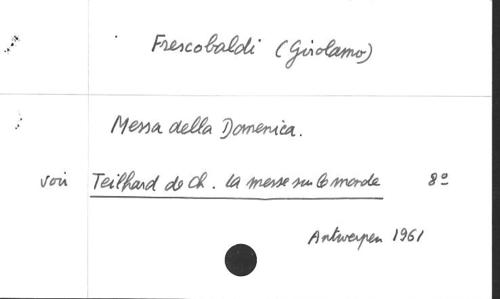 Frescobaldi (Girolamo)
Messa della Domenica.
voir Teilhard de Ch. la messe sur le monde 8º
Antwerpen 1961